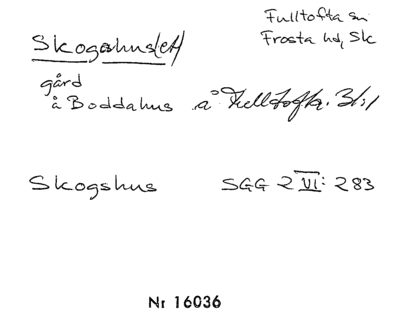 Fulltofta sn
Skogshus(et)
Frosta hd, Sk
gård
å Boddahus å Fulltofta. 3/1:1
Skogshus SGG 2 VI: 283
Nr 16036